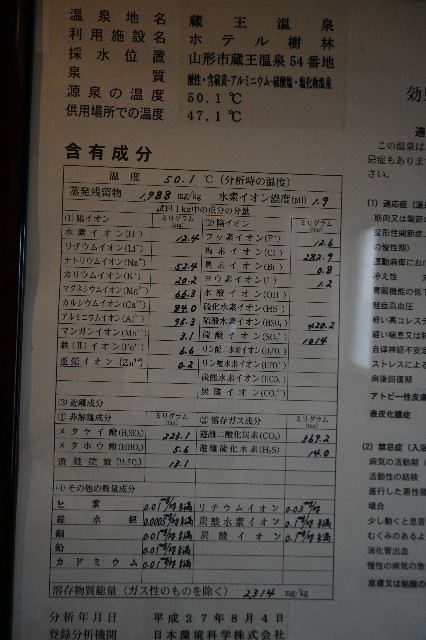 温泉地名 蔵王温泉
利用施設名 ホテル樹林
採水位置 山形市蔵王温泉54番地
泉質 酸性・含硫黄-アルミニウム-硫酸塩・塩化物温泉
源泉の温度 50.1℃
供用場所での温度 47.1℃
含有成分
温度 50.1℃(分析時の温度)
蒸発残留物 1,988 mg/kg 水素イオン濃度(pH) 1.9
試料1kg中の成分の分量
(1)陽イオン ミリグラム (mg) (2)陰イオン ミリグラム (mg)
水素イオン(H+) 12.4 フッ素イオン(F-) 12.6
リチウムイオン(Li+) 塩素イオン(Cl-) 282.9
ナトリウムイオン(Na+) 52.4 臭素イオン(Br-) 0.8
カリウムイオン(K+) 20.7 ヨウ素イオン(I-) 1.2
マグネシウムイオン(Mg2+) 66.3 水酸イオン(OH-)
カルシウムイオン(Ca2+) 84.0 硫化水素イオン(HS-)
アルミニウムイオン(Al3+) 95.3 硫酸水素イオン(HSO4-) 420.2
マンガンイオン(Mn2+) 3.1 硫酸イオン(SO42-) 1014
鉄(II)イオン(Fe2+) 6.6 リン酸二水素イオン(H2PO4-)
亜鉛イオン(Zn2+) 0.2 リン酸水素イオン(HPO42-)
炭酸水素イオン(HCO3-)
炭酸イオン(CO32-)
(3)遊離成分
①非解離成分 ミリグラム (mg) ②溶存ガス成分 ミリグラム (mg)
メタケイ酸(H2SiO3) 223.1 遊離二酸化炭素(CO2) 369.2
メタホウ酸(HBO2) 5.6 遊離硫化水素(H2S) 14.0
遊離硫酸(H2SO4) 13.1
(4)その他の微量成分
ヒ素 0.01mg/kg未満 リチウムイオン 0.03mg/kg
総水銀 0.0005mg/kg未満 炭酸水素イオン 0.1mg/kg未満
銅 0.01mg/kg未満 炭酸イオン 0.1mg/kg未満
鉛 0.01mg/kg未満
カドミウム 0.01mg/kg未満
溶存物質総量(ガス性のものを除く) 2314 mg/kg
分析年月日 平成27年8月4日
登録分析機関 日本環境科学株式会社
効
この温泉は
忌症もありま
さい。
(1) 適応症(温
筋肉又は関節
変形性関節症、
の慢性期)
運動麻痺にお
冷え性
胃腸機能の低
軽症高血圧
軽い高コレス
軽い喘息又は
自律神経不安定
ストレスによる
病後回復期
アトピー性皮膚
表皮化膿症
(2) 禁忌症(入浴
病気の活動期(
活動性の結核
進行した悪性腫
場合
少し動くと息苦
むくみのあるよ
消化管出血
慢性の病気の急
皮膚又は粘膜の